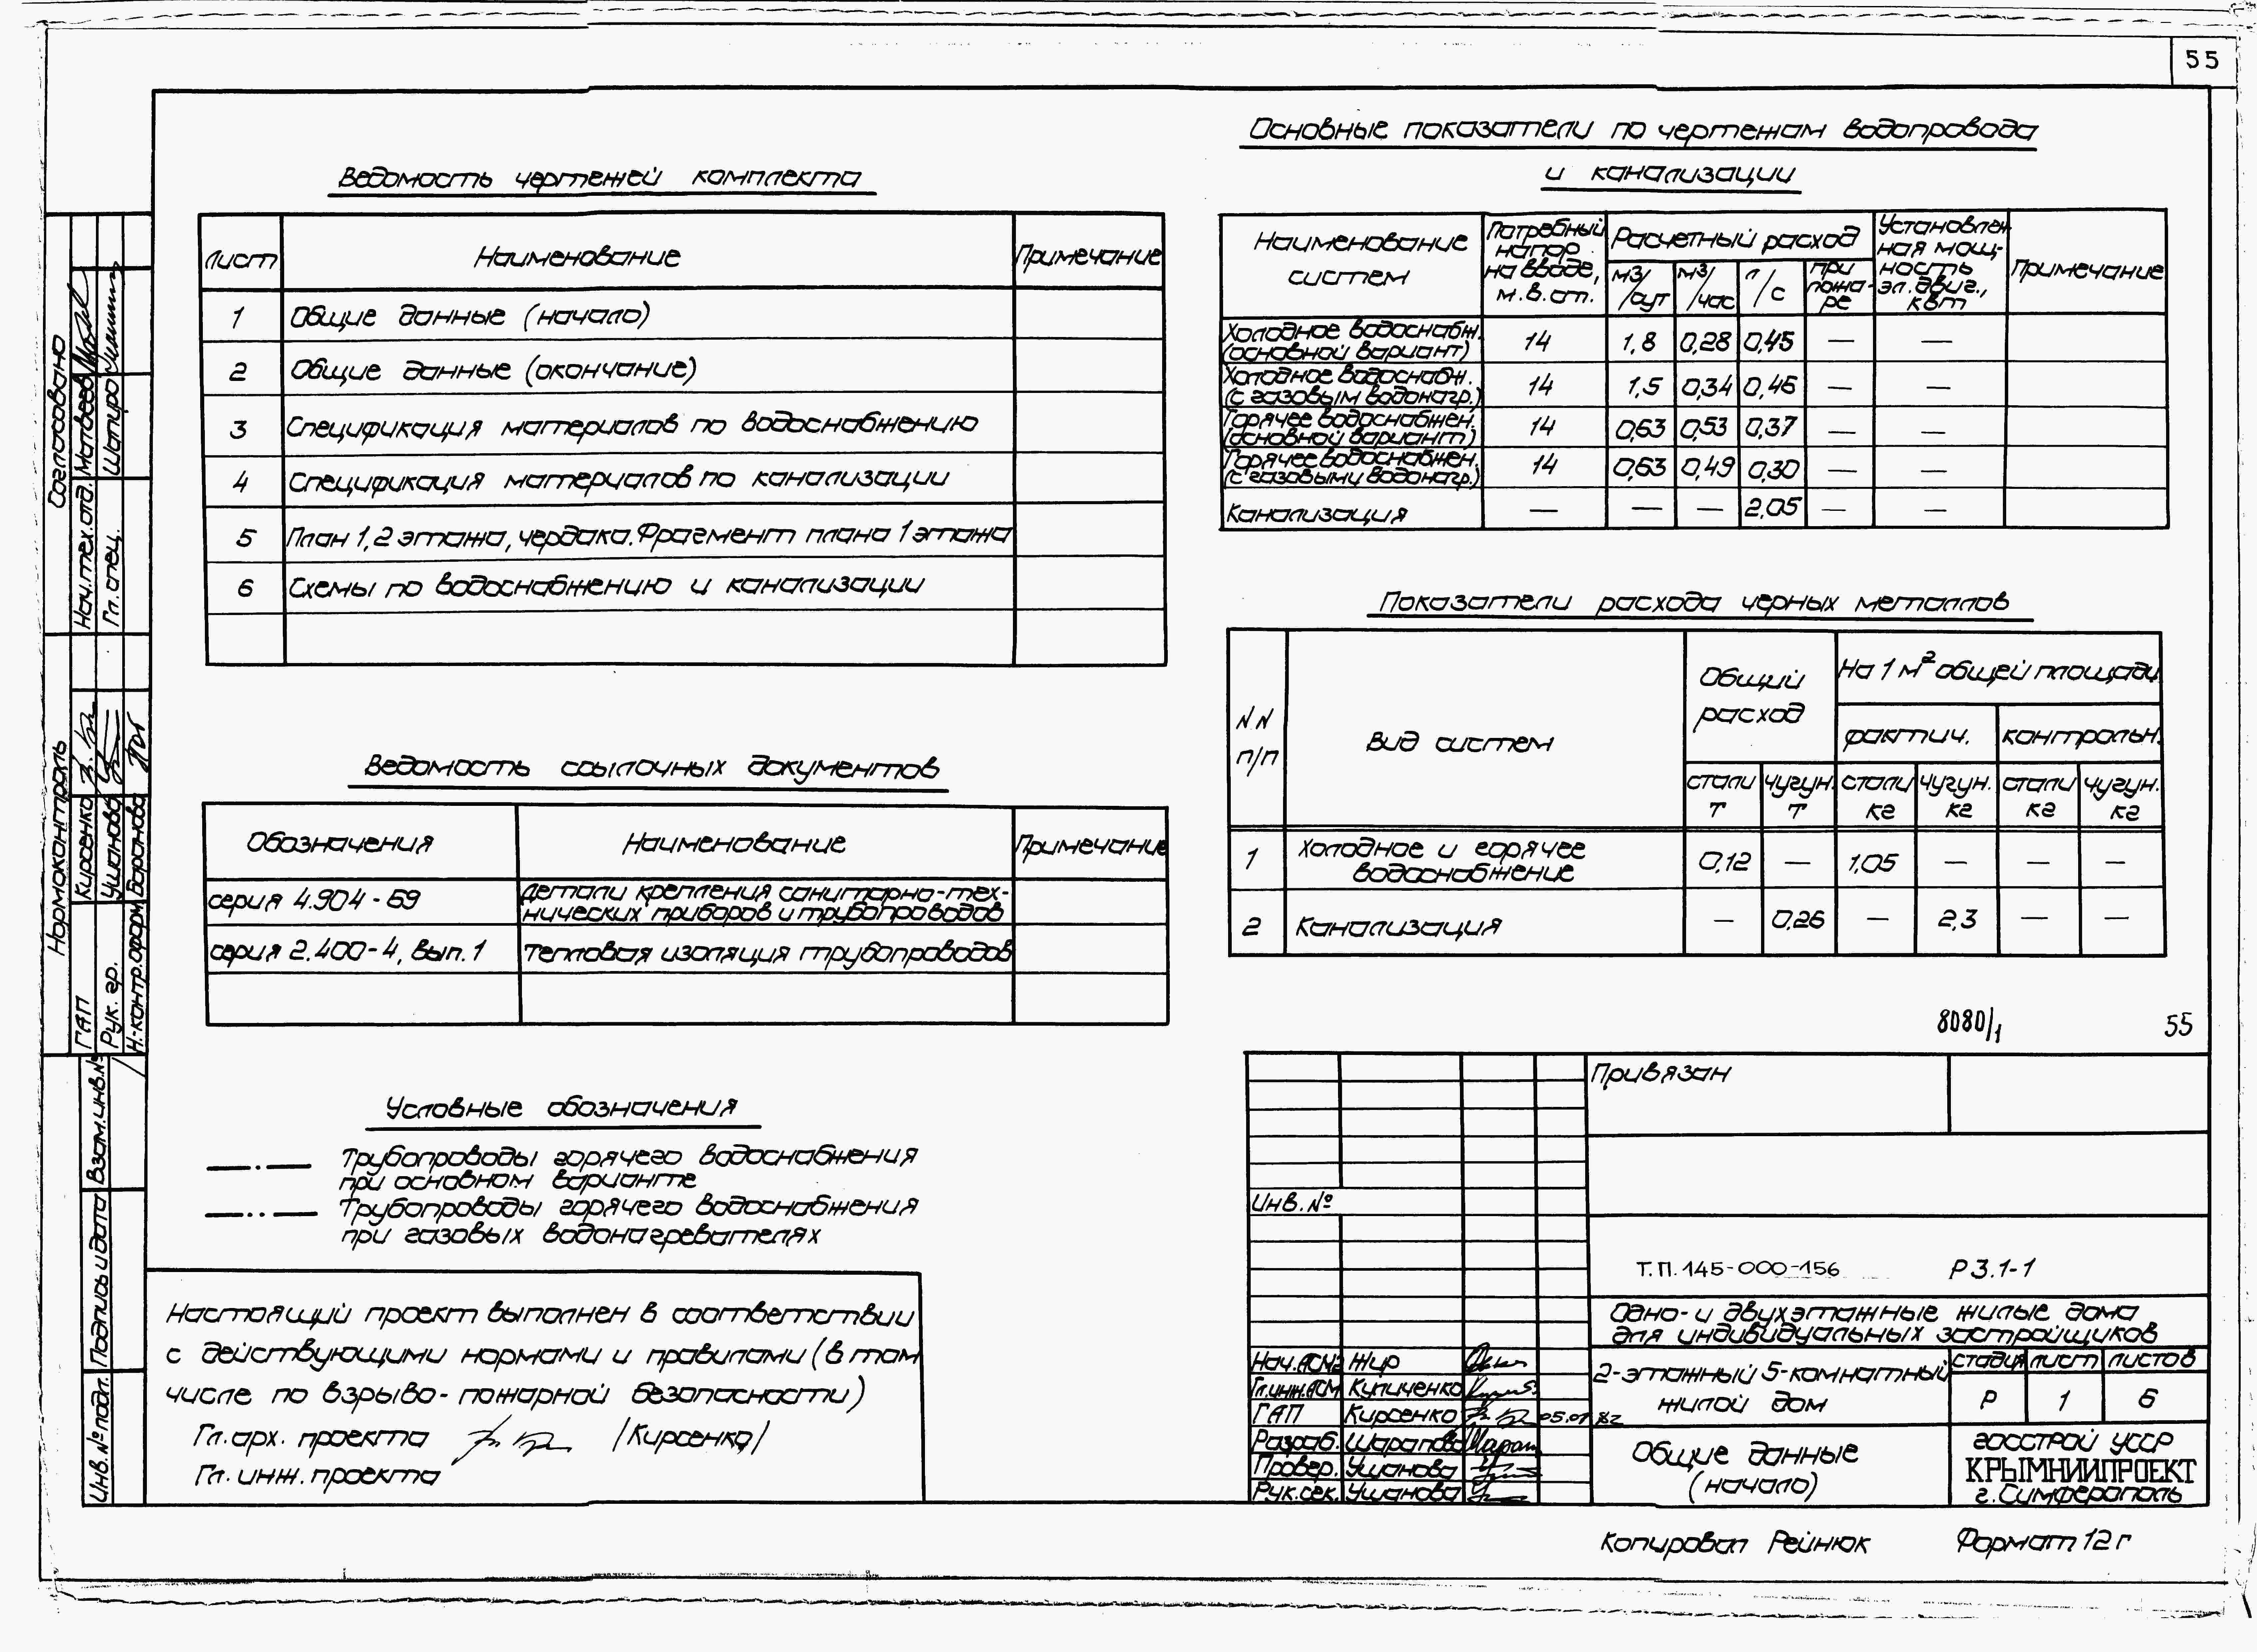 55
Ведомость чертежей комплекта
Лист Наименование Примечание
1 Общие данные (начало)
2 Общие данные (окончание)
3 Спецификация материалов по водоснабжению
4 Спецификация материалов по канализации
5 План 1,2 этажа, чердака. Фрагмент плана 1 этажа
6 Схемы по водоснабжению и канализации
Ведомость ссылочных документов
Обозначения Наименование Примечание
серия 4.904-69 Детали крепления санитарно-тех-
нических приборов и трубопроводов
серия 2.400-4, вып. 1 Тепловая изоляция трубопроводов
Условные обозначения
Трубопроводы горячего водоснабжения
при основном варианте
Трубопроводы горячего водоснабжения
при газовых водонагревателях
Настоящий проект выполнен в соответствии
с действующими нормами и правилами (в том
числе по взрыво-пожарной безопасности)
Гл. арх. проекта /Кирсенко/
Гл. инж. проекта
Основные показатели по чертежам водопровода
и канализации
Наименование систем Потребный напор на вводе, м.в.ст. Расчетный расход Установлен ная мощ- ность эл. двиг., квт Примечание
м3/сут м3/час л/с при пожа- ре
Холодное водоснабж. (основной вариант) 14 1,8 0,28 0,45 — —
Холодное водоснабж. (с газовым водонагр.) 14 1,5 0,34 0,46 — —
Горячее водоснабжен. (основной вариант) 14 0,63 0,53 0,37 — —
Горячее водоснабжен. (с газовыми водонагр.) 14 0,63 0,49 0,30 — —
Канализация — — — 2,05 — —
Показатели расхода черных металлов
NN п/п Вид систем Общий расход На 1 м2 общей площади
фактич. контрольн.
стали т чугун. т стали кг чугун. кг стали кг чугун. кг
1 Холодное и горячее водоснабжение 0,12 — 1,05 — — —
2 Канализация — 0,26 — 2,3 — —
8080/1 55
Привязан
Инв. №
Т.П. 145-000-156 Р 3.1-1
Одно- и двухэтажные жилые дома
для индивидуальных застройщиков
2-этажный 5-комнатный
жилой дом
стадия лист листов
Р 1 6
Общие данные
(начало)
ГОССТРОЙ УССР
КРЫМНИИПРОЕКТ
г. Симферополь
Нач. АСМ2 Жир
Гл.инж.АСМ Куличенко
ГАП Кирсенко 05.01.82
Разраб. Шарапова
Провер. Ушанова
Рук.сек. Ушанова
Копировал Рейнюк Формат 12г
Согласовано
Нач.тех.отд. Матвеев
Гл. спец. Шапиро
Нормоконтроль
ГАП Кирсенко
Рук. гр. Ушанова
Н-контр.оформ Баранова
Взам.инв.№
Подпись и дата
Инв. № подл.